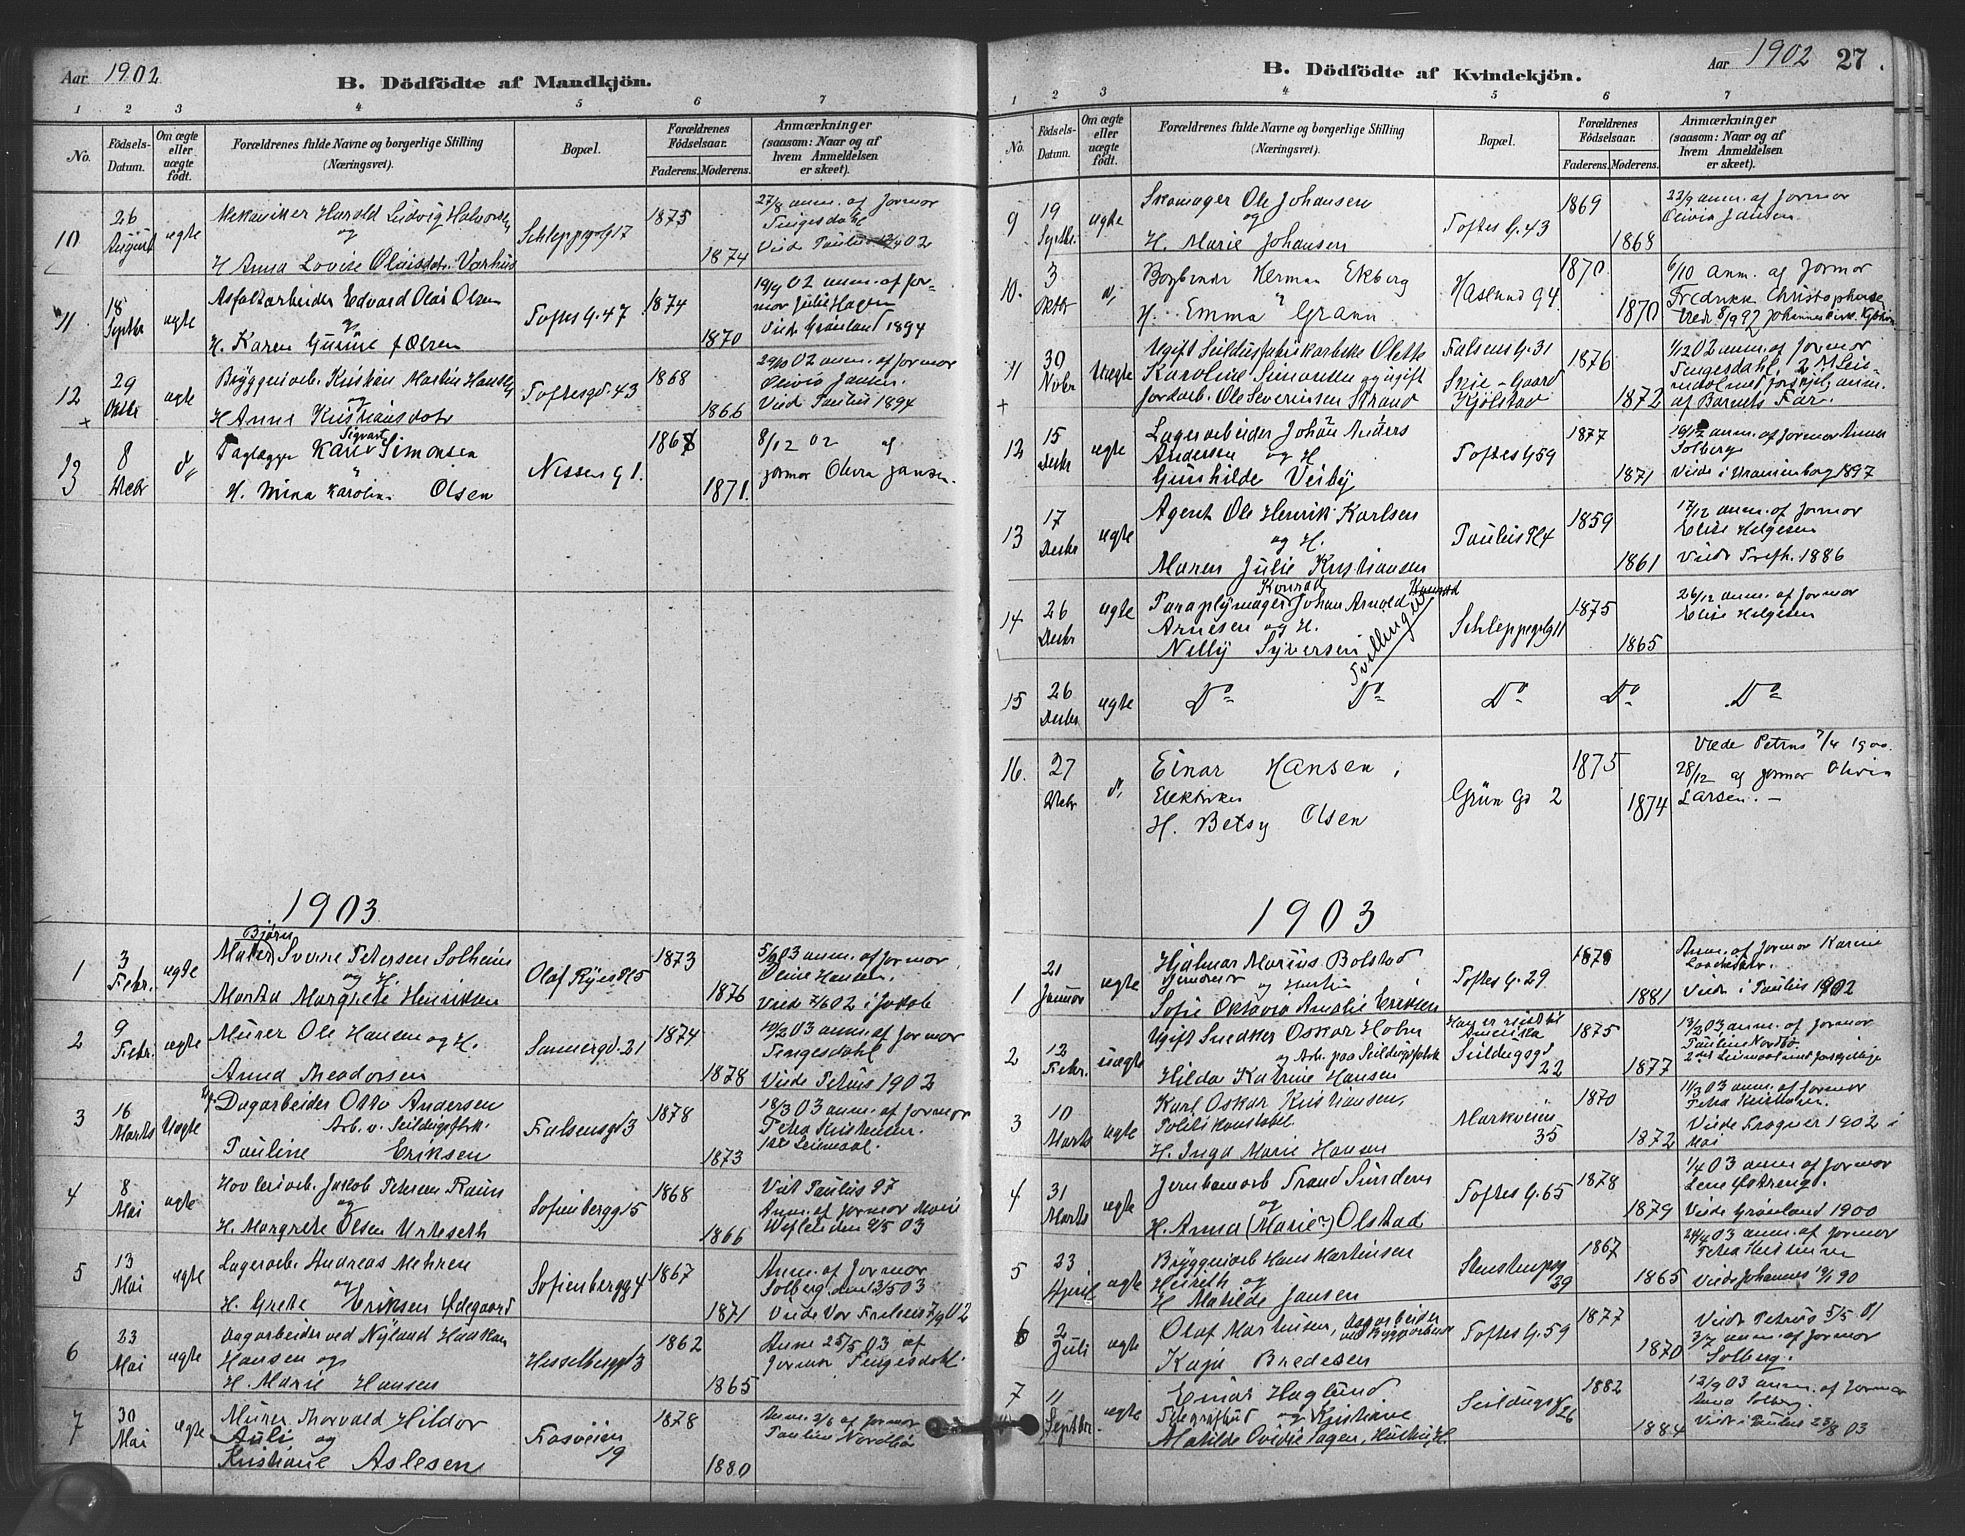 Aar 1902
B. Dödfödte af Mandkjön.
1 2 3 4 5 6 7
No.
Födsels-
Datum.
Om ægte
eller
uægte
födt.
Forældrenes fulde Navne og borgerlige Stilling
(Næringsvei).
Bopæl.
Forældrenes
Födselsaar.
Faderens. Moderens.
Anmærkninger
(saasom: Naar og af
hvem Anmeldelsen
er skeet).
10
26
August
ægte
Mekaniker Harald Ludvig
og
H Anna Lovise Olaisdatr. Varhus
Schleppegr. 17
1875
1874
27/8 anm. af Jormor
Tingesdahl
Viede Paulus 02
11
18
Septbr
ægte
Asfaltarbeider Edvard Olai Olsen
og
H. Karen Gurine f Olsen
Toftes G. 47
1874
1870
19/9 02 anm. af Jor-
mor Julie Hagen
Viede Grønland 1894
12
+
29
Oktbr
ægte
Bryggeriarb. Kristian Martin Hansen
og
H Anne Kristiansdatr
Toftesgd. 43
1868
1866
29/10 02 anm. af Jormor
Olivia Jansen.
Viede Paulus 1894
13
8
Debr
d"
Taglægger Karl Sigvart Simonsen
H. Mina Karolin. Olsen
Nissens g 1.
1868
1871.
8/12 02 af
jormor Olivia Jansen.
1903
1
3
Febr.
ægte
Bjørn
Maler Sverre Petersen Solheim
og H.
Martha Margrete Henriksen
Olaf Ryes Pl 5
1873
1876
5/2 03 anm. af Jormor
Oline Hansen.
Viede 7/6 02 i Jakob
2
9
Febr.
ægte
Murer Ole Hansen og H.
Anna Theodorsen
Sannergd. 21
1874
1878
10/2 03 anm. af Jormor
Tingesdahl
Viede Petrus 1902
3
16
Marts
Uægte
Dagarbeider Otto Andersen
Arb. v. Seildugsfbrk.
Pauline Eriksen
Falsensgd 3
1878
1873
18/3 03 anm. af Jormor
Petra Kristensen.
1ste Leiermaal.
4
8
Mai
ægte
Jakob Petersen
og
H. Margrete Olsen Urkeseth
Sofienbergg 15
1868
1866
Viet Paulus 97
Anm. af Jormor Marie
den 9/5 03
5
13
Mai
ægte
Lagerarb. Andreas Mehren
og
H. Grete Eriksen Ødegaard
Sofienbergg 4
1867
1871
Anm. af Jormor
Solberg den 13/5 03
Viede Vor Frelsers 7/9 02
6
23
Mai
ægte
Dagarbeider ved Nyland Haakon
Hansen og
H. Marie Hansen
Hesselbergsgd 3
1862
1865
Anm 25/5 03 af
Jormor Tingesdahl.
7
30
Mai
ægte
Murer Thorvald Hildor
Auli og
Kristiane Aslesen
Fossveien
19
1878
1880
Anm. 2/6 af Jormor
Pauline Nordbø
Aar 1902 27.
B. Dödfödte af Kvindekjön.
1 2 3 4 5 6 7
No.
Födsels-
Datum.
Om ægte
eller
uægte
födt.
Forældrenes fulde Navne og borgerlige Stilling
(Næringsvei).
Bopæl.
Forældrenes
Födselsaar.
Faderens. Moderens.
Anmærkninger
(saasom: Naar og af
hvem Anmeldelsen
er skeet).
9
19
Septbr.
ægte
Skomager Ole Johansen
og
H. Marie Johansen
Toftes G. 43
1869
1868
22/9 anm. af Jormor
Olivia Jansen.
10.
3
Oktbr
d,
Herman Ekberg
H. Emma Grann
Haslund g 4
1870.
1870
6/10 anm. af Jormor
Fredrikke Christophersen
Viede 8/9 97 Johannes Kirk.
11
+
30
Novbr
Uægte
Ugift Seildugsfabrikarbeiderske Olette
Karoline Simonsen og ugift
Jordarb. Ole Severinsen Strand
Falsens G. 31
Skie-Gaard
Kjølstad
1876
1872
1/12 02 anm. af Jormor
Tingesdahl, 2 M Leier-
maal med forskjel., anm.
af Barnets Far.
12
15
Decbr
ægte
Lagerarbeider Johan Anders
Andersen og H.
Gunhilde Veiby
Toftes G 59
1877
1871
16/12 anm. af Jormor Anna
Solberg
Viede i Uranienborg 1897
13
17
Decbr
ægte
Agent Ole Henrik Karlsen
og H.
Maren Julie Kristiansen
Paulus Pl 4
1859
1861
17/12 anm. af Jormor
Elise Helgesen
Viede Trefh. 1886
14
26
Decbr
ægte
Konrad
Paraplymager Johan Arnold Konrad
Arnesen og H.
Nelly Syversen
Tvillinger
Schleppegrlg 11
1875
1865
26/12 anm. af Jormor
Elise Helgesen
15
26
Decbr
ægte
Do Do Do Do Do
16.
27
Debr
d,
Einar Hansen,
Elektriker
H. Betsy Olsen
Grün Gd 2
1875
1874
Viede Petrus 7/4 1900.
28/12 af jormor Olivia
Larsen. -
1903
1
21
Januar
ægte
Hjalmar Marius Bolstad
og Hustru
Sofie Oktavia Amalie Eriksen
Toftes G. 29
1878
1881
Anm. af Jormor Karine
Viede i Paulus 1902
2
12
Febr.
uægte
Ugift Snedker Oskar Holm
og Arb. paa Seildugsfabrik
Hilda Katrine Hansen
Han er reist til
Amerika
Seildugsgd
22
1875
1877
13/2 03 anm. af Jormor
Pauline Nordbø
2det Leiermaal med forskjellige
3
10
Marts
ægte
Karl Oskar Kristiansen,
Politikonstabel
H. Inga Marie Hansen
Markveien
35
1870
1872
11/3 03 anm. af Jormor
Petra Kristensen.
Viede Frogner 1902 i
Mai
4
31
Marts
ægte
Jernbanearb Trond Sundem
og
H. Anna (Marie) Olstad
Toftes G. 65
1878
1879
1/4 03 anm. af Jormor
Lene Østreng.
Viede Grønland 1900
5
23
April
ægte
Bryggeriarb Hans Martinsen
og
H Matilde Jansen
Stenstrupsg
29
1867
1865
24/4 03 anm. af Jormor
Petra Kristensen
Viede Johannes 90
6
2
Juli
ægte
Olaf Martinsen, Dagarbeider
Kaja Bredesen
Toftes G. 59
1877
1870
Viede Petrus 5/5 01
3/7 anm. af Jormor
Solberg.
7
11
Septbr.
ægte
Einar Haglund
Telegrafbud og Kristiane
Matilde Ovidie Hustru H.
Seildugsg 26
1882
1884
12/9 03 anm. af Jormor
Anna Solberg.
Viede i Paulus 23/8 03